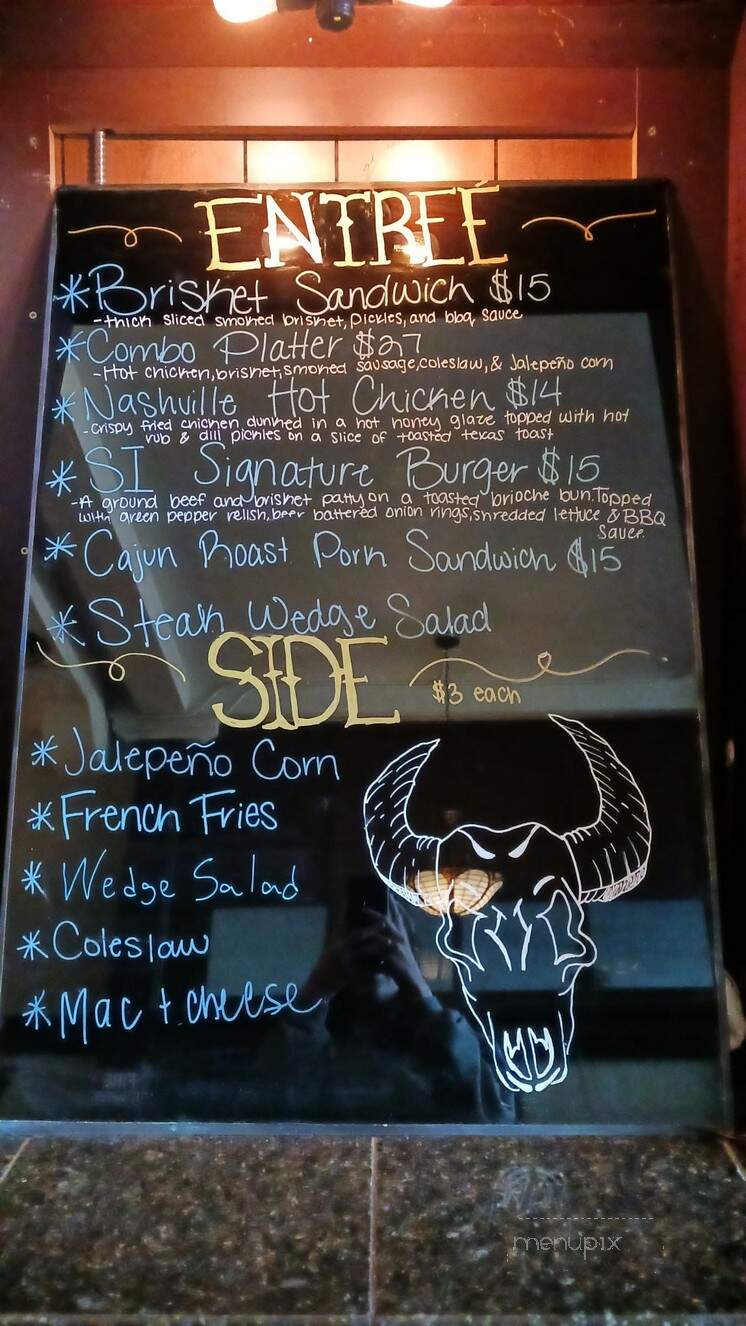 ENTREÉ
*Brisket Sandwich $15
-thick sliced smoked brisket, pickles, and bbq sauce
*Combo Platter $27
-Hot chicken, brisket, smoked sausage, coleslaw, & Jalepeño corn
*Nashville Hot Chicken $14
-crispy fried chicken dunked in a hot honey glaze topped with hot
rub & dill pickles on a slice of toasted texas toast
*SI Signature Burger $15
-A ground beef and brisket patty on a toasted brioche bun. Topped
with green pepper relish, beer battered onion rings, shredded lettuce & BBQ
sauce
*Cajun Roast Pork Sandwich $15
*Steak Wedge Salad
SIDE
$3 each
*Jalepeño Corn
*French Fries
*Wedge Salad
*Coleslaw
*Mac + cheese
menupix